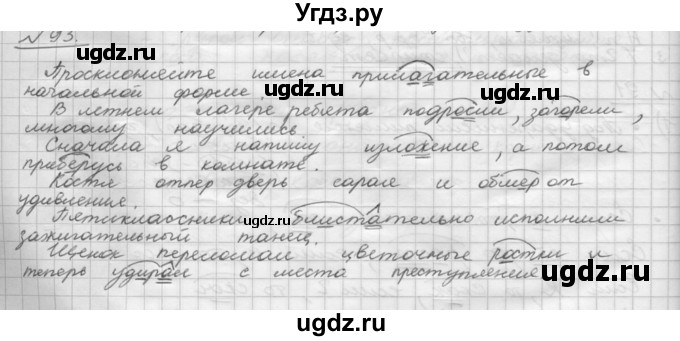 Угдз.ру
N 93.
Просклоняйте имена прилагательные в
начальной форме.
В летнем лагере ребята подросли, загорели,
многому научились.
Сначала я напишу изложение, а потом
приберусь в комнате.
Костя отпер дверь сарая и обмер от
удивления.
Пятиклассники блистательно исполнили
зажигательный танец.
Щенок переломал цветочные ростки и
теперь удирал с места преступления
ugdz.ru ugdz.ru ugdz.ru
ugdz.ru ugdz.ru
ugdz.ru ugdz.ru
ugdz.ru ugdz.ru ugdz.ru